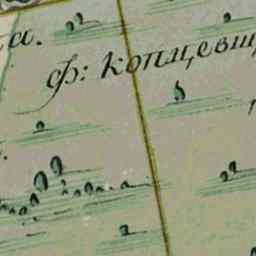 а.
ф: копцевщ